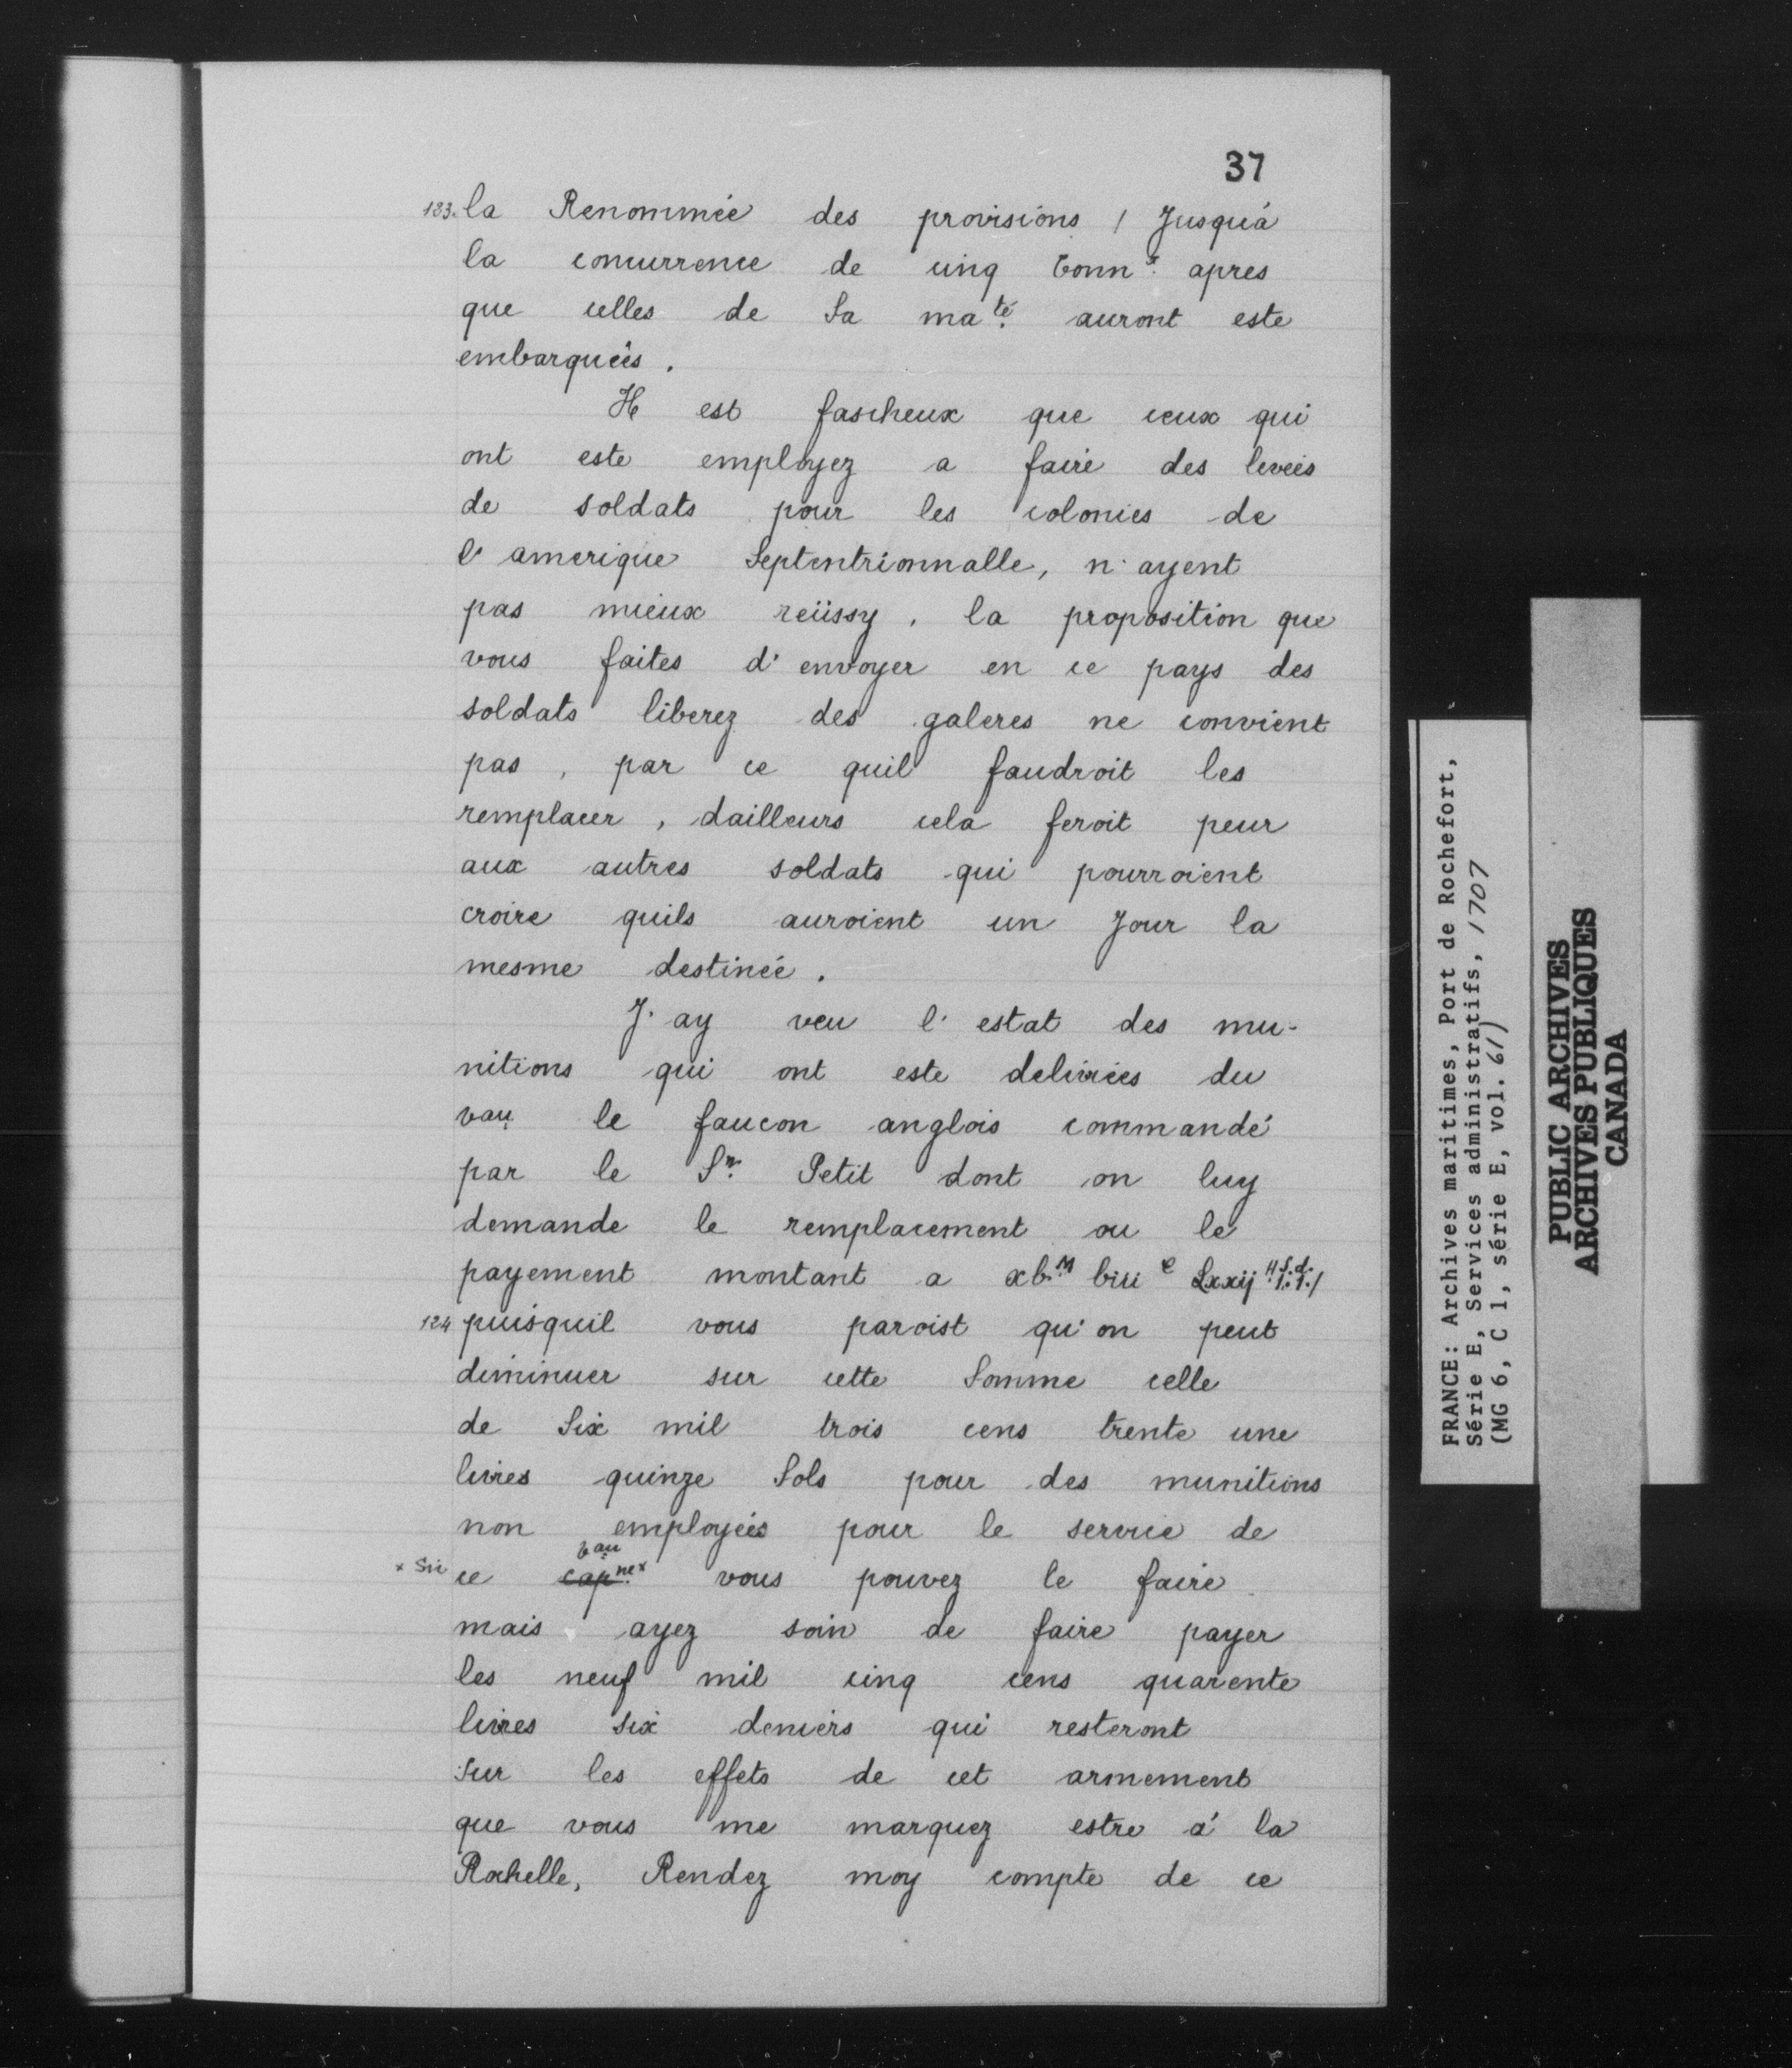 37
123. la Renommée des provisions / Jusqu'à
la concurrence de cinq tonnx. apres
que celles de Sa maté. auront este
embarquées.
Il est fascheux que ceux qui
ont este employez a faire des levées
de soldats pour les colonies de
l'amerique Septentrionnalle, n'ayent
pas mieux reüssy, la proposition que
vous faites d'envoyer en ce pays des
soldats liberez des galeres ne convient
pas, par ce quil faudroit les
remplacer, dailleurs cela feroit peur
aux autres soldats qui pourroient
croire quils auroient un Jour la
mesme destinée.
J'ay veu l'estat des mu-
nitions qui ont este delivrées du
vau le faucon anglois commandé
par le Sr. Petit dont on luy
demande le remplacement ou le
payement montant a xb.M biii c Lxxij
124 puisquil vous paroist qu'on peut
diminuer sur cette Somme celle
de Six mil trois cens trente une
livres quinze Sols pour des munitions
non employées pour le service de
vau
x Sic ce capne.x vous pouvez le faire
mais ayez soin de faire payer
les neuf mil cinq cens quarente
livres six deniers qui resteront
Sur les effets de cet armement
que vous me marquez estre à la
Rochelle, Rendez moy compte de ce
FRANCE: Archives maritimes, Port de Rochefort,
Série E, Services administratifs, 1707
(MG 6, C 1, série E, vol. 611)
PUBLIC ARCHIVES
ARCHIVES PUBLIQUES
CANADA